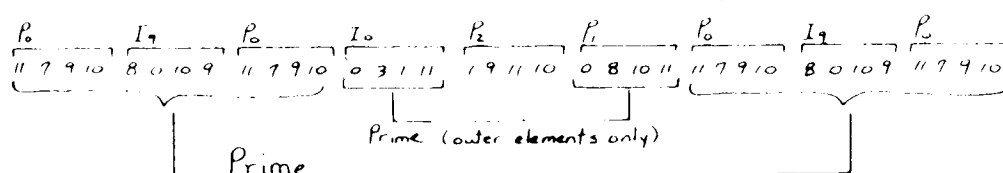 P₀ I₉ P₀ I₀ P₂ P₁ P₀ I₉ P₀
11 7 9 10 8 0 10 9 11 7 9 10 0 3 1 11 1 9 11 10 0 8 10 11 11 7 9 10 8 0 10 9 11 7 9 10
Prime (outer elements only)
Prime